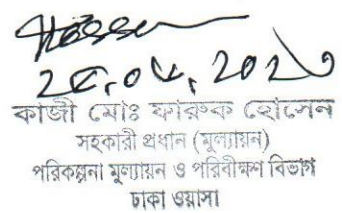 কাজী মোঃ ফারুক হোসেন
সহকারী প্রধান (মূল্যায়ন)
পরিকল্পনা মুল্যায়ন ও পরিবীক্ষণ বিভাগ
ঢাকা ওয়াসা